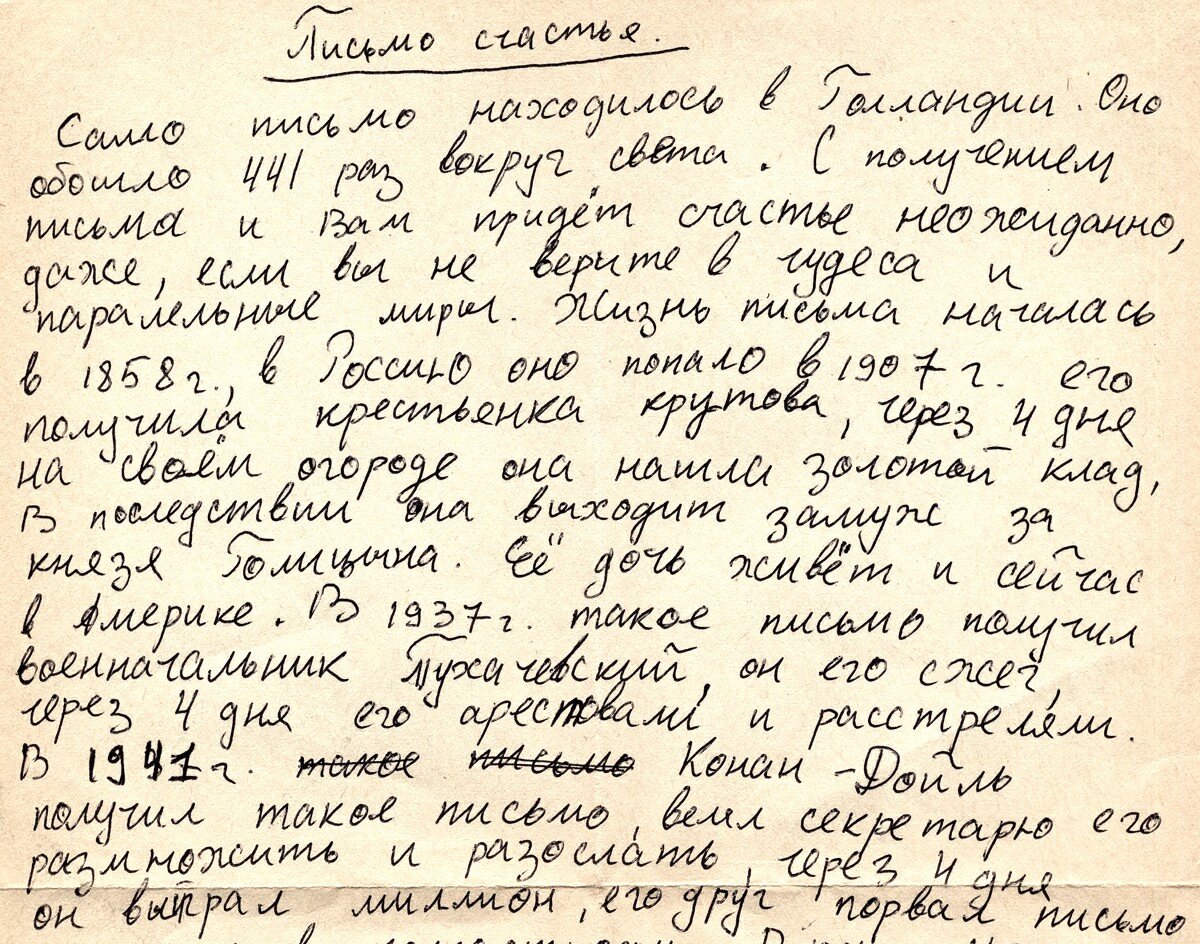 Письмо счастья.
Само письмо находилось в Голландии. Оно
обошло 441 раз вокруг света. С получением
письма и Вам придёт счастье неожиданно,
даже, если вы не верите в чудеса и
паралельные миры. Жизнь письма началась
в 1858г., в Россию оно попало в 1907г. его
получила крестьенка крутова, через 4 дня
на своём огороде она нашла золотой клад,
В последствии она выходит замуж за
князя Голицына. Её дочь живёт и сейчас
в Америке. В 1937г. такое письмо получил
военначальник Тухачевский, он его сжег,
через 4 дня его арестовали и расстреляли.
В 1941г. такое письмо Конан-Дойль
получил такое письмо, велел секретарю его
размножить и разослать, через 4 дня
он выйграл миллион, его друг порвал письмо